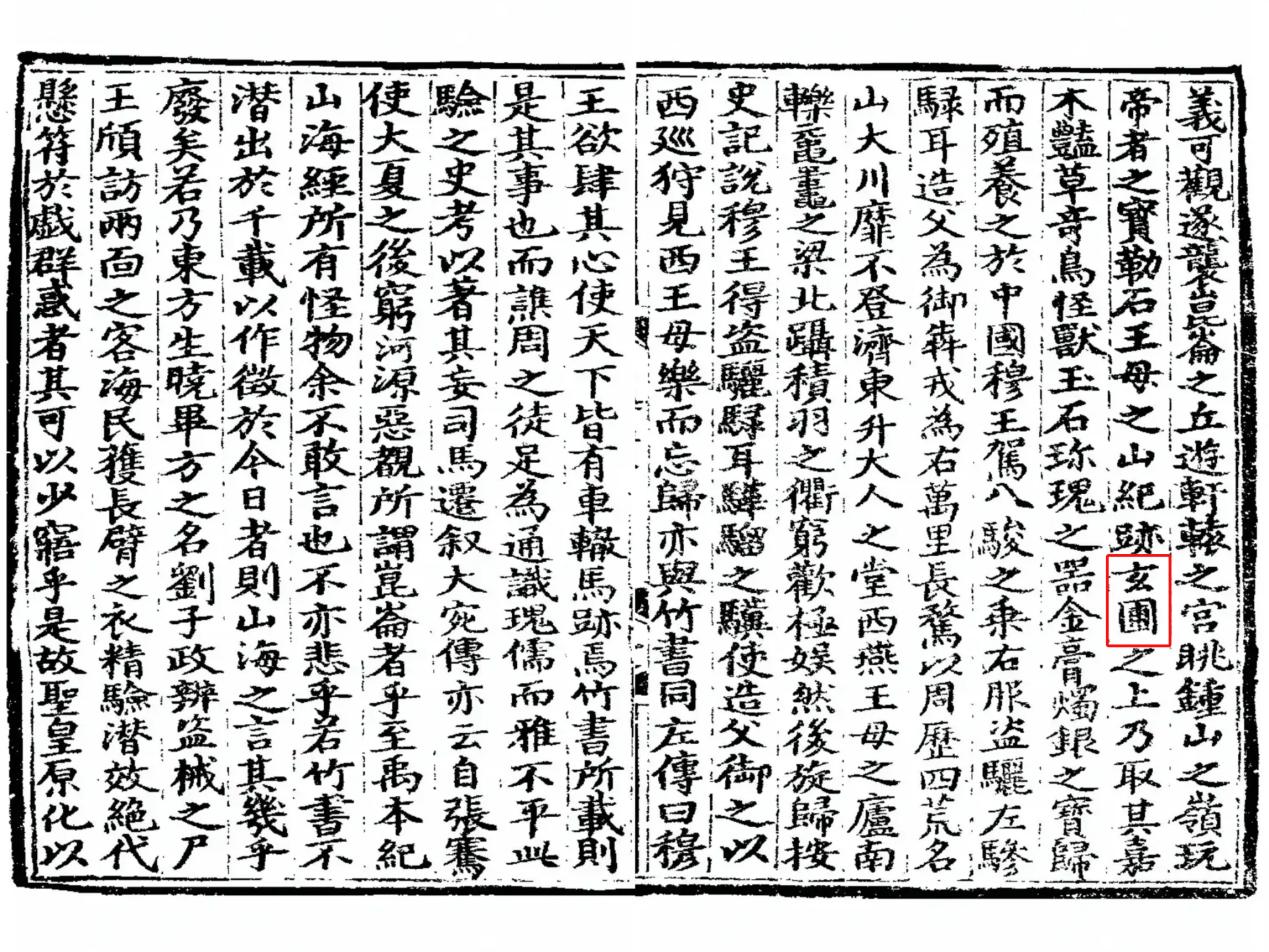 義可觀遂襲崑崙之丘遊軒轅之宮眺鍾山之嶺玩
帝者之寶勒石王母之山紀跡玄圃之上乃取其嘉
木豔草奇鳥怪獸玉石珎瑰之器金膏燭銀之寶歸
而殖養之於中國穆王駕八駿之乗右服盗驪左驂
騄耳造父為御犇戎為右萬里長騖以周歷四荒名
山大川靡不登濟東升大人之堂西燕王母之廬南
轢黿鼉之梁北躡積羽之衢窮歡極娛然後旋歸按
史記說穆王得盗驪騄耳驊騮之驥使造父御之以
西廵狩見西王母樂而忘歸亦與竹書同左傳曰穆
王欲肆其心使天下皆有車轍馬跡焉竹書所載則
是其事也而譙周之徒足為通識瑰儒而雅不平此
驗之史考以著其妄司馬遷叙大宛傳亦云自張騫
使大夏之後窮河源惡覩所謂崑崙者乎至禹本紀
山海經所有怪物余不敢言也不亦悲乎若竹書不
潛出於千載以作徵於今日者則山海之言其幾乎
廢矣若乃東方生曉畢方之名劉子政辨盗械之尸
王頎訪兩面之客海民獲長臂之衣精驗潛效絶代
懸符於戯群惑者其可以少寤乎是故聖皇原化以